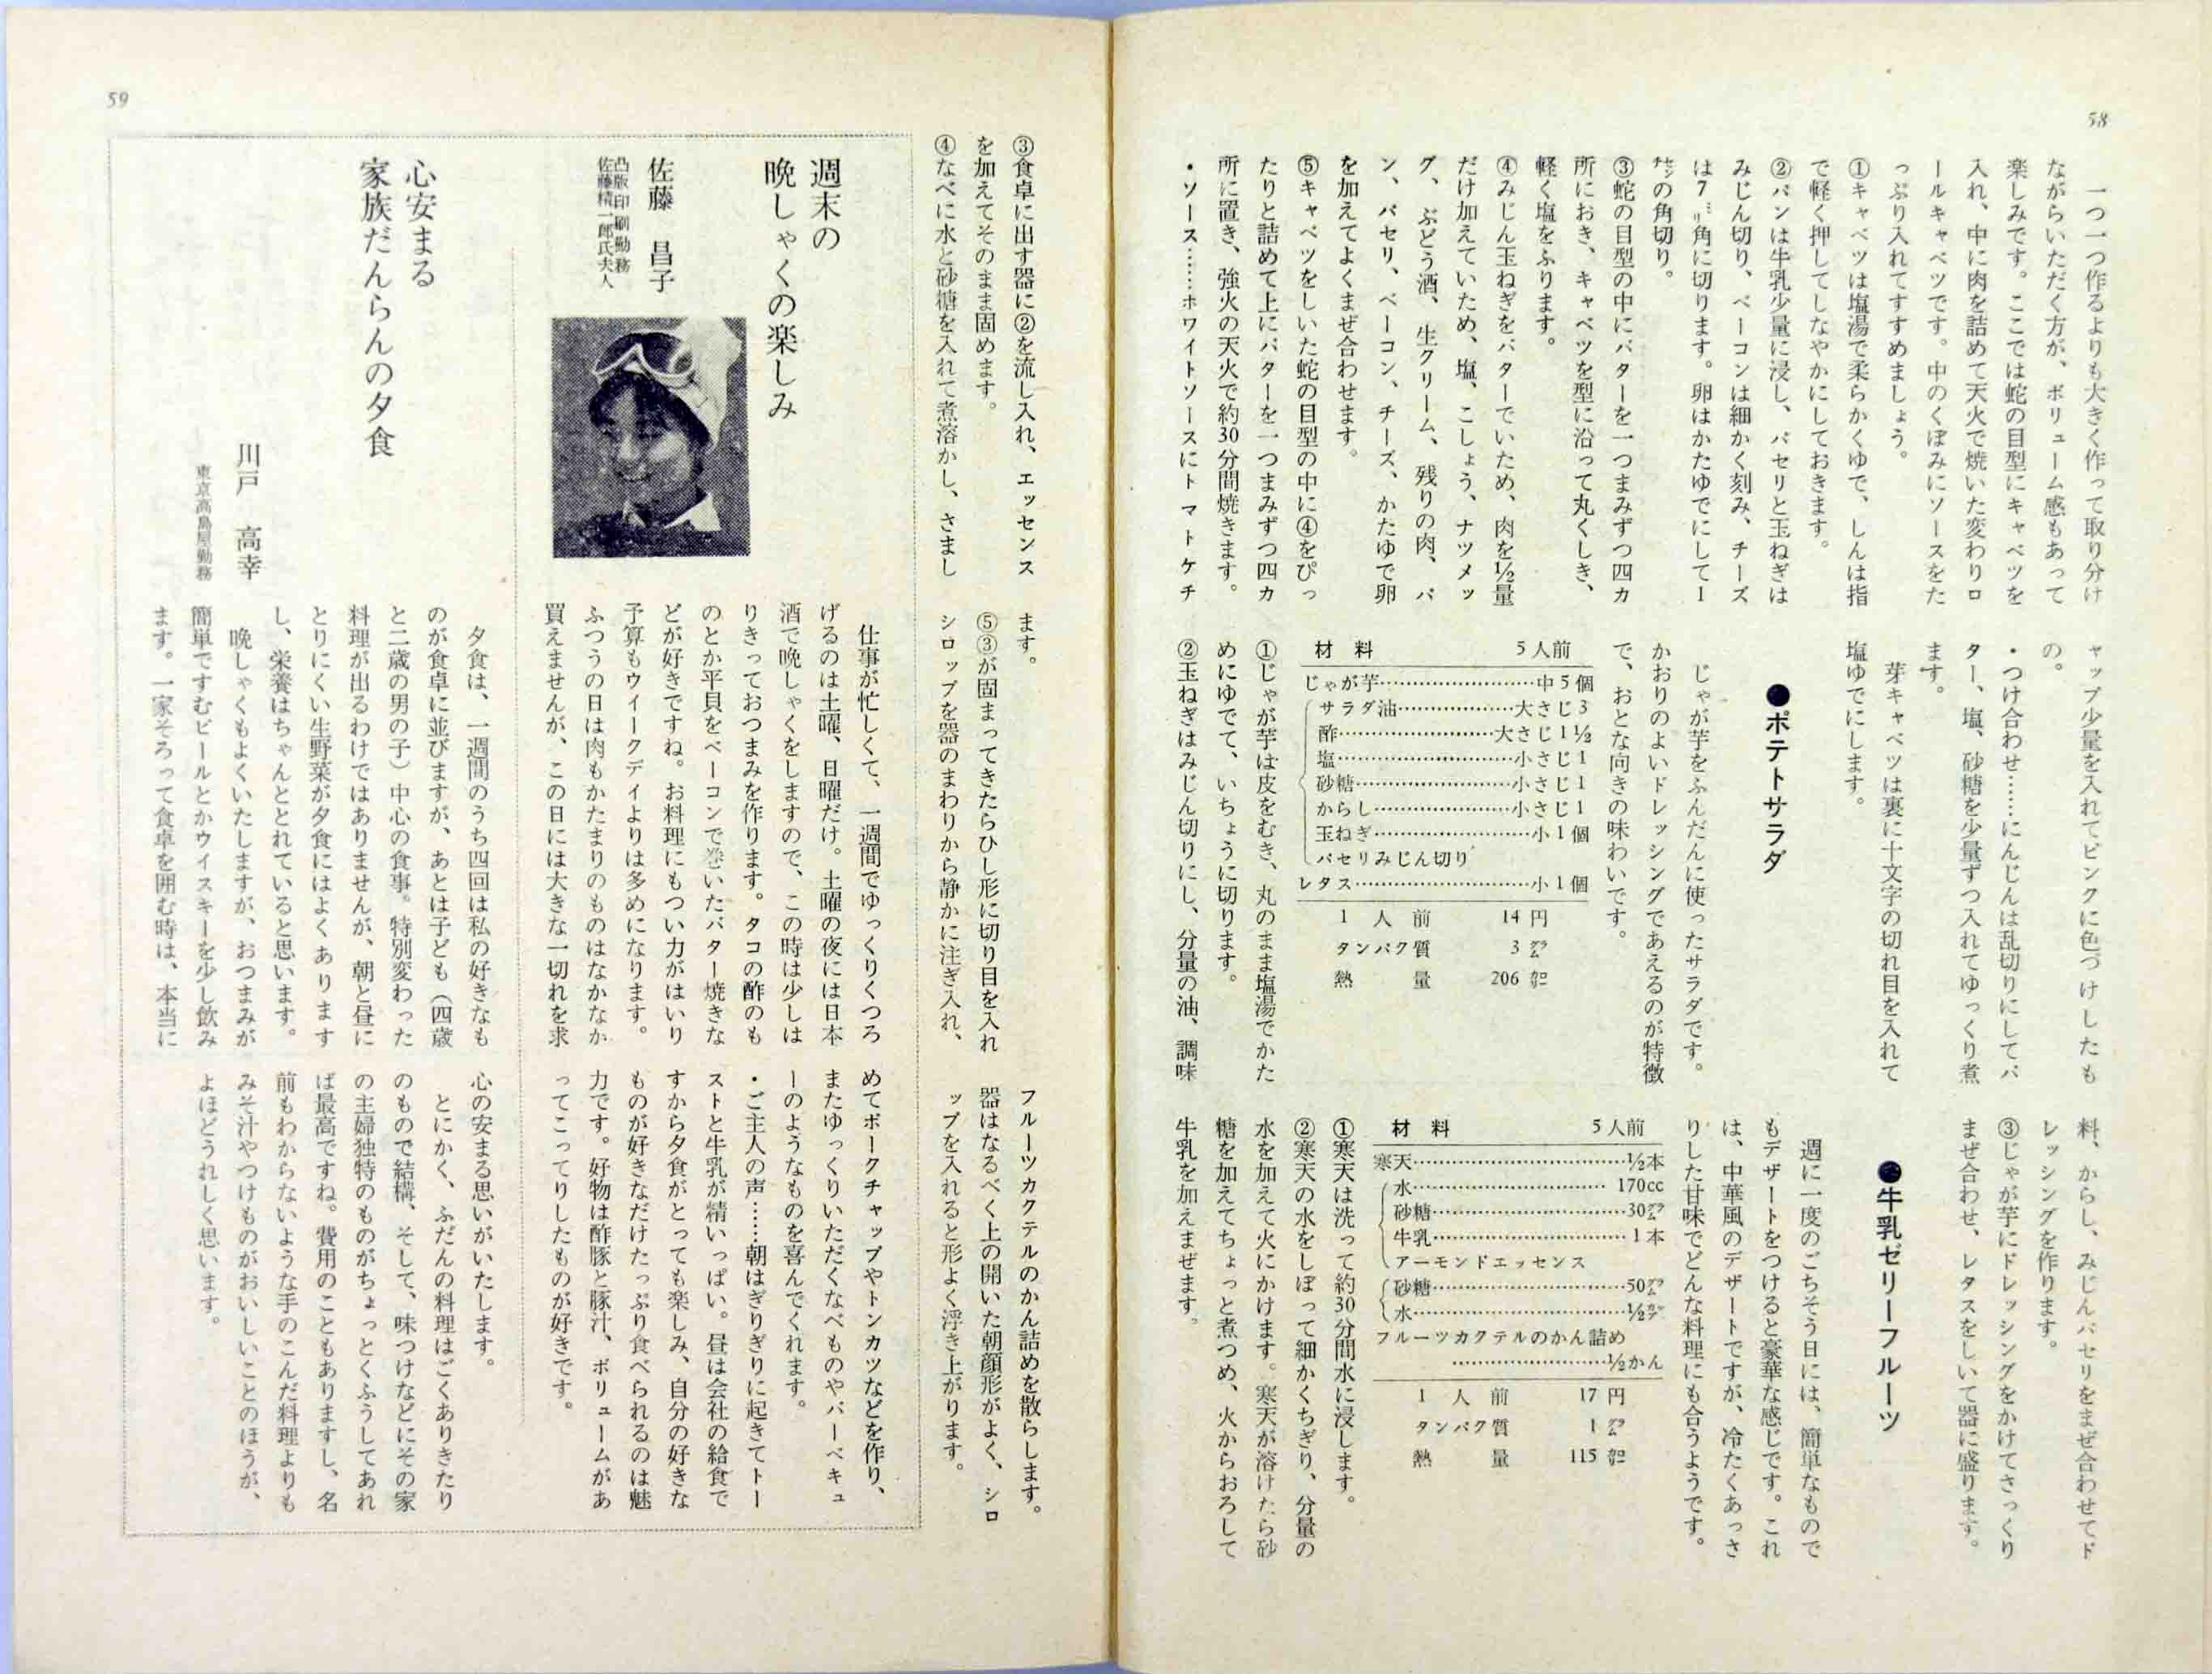 58
一つ一つ作るよりも大きく作って取り分け
ながらいただく方が、ボリューム感もあって
楽しみです。ここでは蛇の目型にキャベツを
入れ、中に肉を詰めて天火で焼いた変わりロ
ールキャベツです。中のくぼみにソースをた
っぷり入れてすすめましょう。
①キャベツは塩湯で柔らかくゆで、しんは指
で軽く押してしなやかにしておきます。
②パンは牛乳少量に浸し、パセリと玉ねぎは
みじん切り、ベーコンは細かく刻み、チーズ
は7㍉角に切ります。卵はかたゆでにして1
㌢の角切り。
③蛇の目型の中にバターを一つまみずつ四カ
所におき、キャベツを型に沿って丸くしき、
軽く塩をふります。
④みじん玉ねぎをバターでいため、肉を½量
だけ加えていため、塩、こしょう、ナツメッ
グ、ぶどう酒、生クリーム、残りの肉、パ
ン、パセリ、ベーコン、チーズ、かたゆで卵
を加えてよくまぜ合わせます。
⑤キャベツをしいた蛇の目型の中に④をぴっ
たりと詰めて上にバターを一つまみずつ四カ
所に置き、強火の天火で約30分間焼きます。
・ソース……ホワイトソースにトマトケチ
ャップ少量を入れてピンクに色づけしたも
の。
・つけ合わせ……にんじんは乱切りにしてバ
ター、塩、砂糖を少量ずつ入れてゆっくり煮
ます。
芽キャベツは裏に十文字の切れ目を入れて
塩ゆでにします。
●ポテトサラダ
じゃが芋をふんだんに使ったサラダです。
かおりのよいドレッシングであえるのが特徴
で、おとな向きの味わいです。
材料 5人前
じゃが芋……………………中5個
サラダ油………………大さじ3
酢……………………大さじ1½
塩………………………小さじ1
砂糖……………………小さじ1
からし…………………小さじ1
玉ねぎ……………………小1個
パセリみじん切り
レタス………………………小1個
1人前 14円
タンパク質 3㌘
熱量 206㌍
①じゃが芋は皮をむき、丸のまま塩湯でかた
めにゆでて、いちょうに切ります。
②玉ねぎはみじん切りにし、分量の油、調味
料、からし、みじんパセリをまぜ合わせてド
レッシングを作ります。
③じゃが芋にドレッシングをかけてさっくり
まぜ合わせ、レタスをしいて器に盛ります。
●牛乳ゼリーフルーツ
週に一度のごちそう日には、簡単なもので
もデザートをつけると豪華な感じです。これ
は、中華風のデザートですが、冷たくあっさ
りした甘味でどんな料理にも合うようです。
材料 5人前
寒天……………………………½本
水………………………… 170cc
砂糖…………………………30㌘
牛乳…………………………1本
アーモンドエッセンス
砂糖…………………………50㌘
水……………………………½㌍
フルーツカクテルのかん詰め
……………………½かん
1人前 17円
タンパク質 1㌘
熱量 115㌍
①寒天は洗って約30分間水に浸します。
②寒天の水をしぼって細かくちぎり、分量の
水を加えて火にかけます。寒天が溶けたら砂
糖を加えてちょっと煮つめ、火からおろして
牛乳を加えまぜます。
59
③食卓に出す器に②を流し入れ、エッセンス
を加えてそのまま固めます。
④なべに水と砂糖を入れて煮溶かし、さまし
ます。
⑤③が固まってきたらひし形に切り目を入れ
シロップを器のまわりから静かに注ぎ入れ、
フルーツカクテルのかん詰めを散らします。
器はなるべく上の開いた朝顔形がよく、シロ
ップを入れると形よく浮き上がります。
週末の
晩しゃくの楽しみ
佐藤 昌子
凸版印刷勤務
佐藤精一郎氏夫人
仕事が忙しくて、一週間でゆっくりくつろ
げるのは土曜、日曜だけ。土曜の夜には日本
酒で晩しゃくをしますので、この時は少しは
りきっておつまみを作ります。タコの酢のも
のとか平貝をベーコンで巻いたバター焼きな
どが好きですね。お料理にもつい力がはいり
予算もウイークデイよりは多めになります。
ふつうの日は肉もかたまりのものはなかなか
買えませんが、この日には大きな一切れを求
めてポークチャップやトンカツなどを作り、
またゆっくりいただくなべものやバーベキュ
ーのようなものを喜んでくれます。
・ご主人の声……朝はぎりぎりに起きてトー
ストと牛乳が精いっぱい。昼は会社の給食で
すから夕食がとっても楽しみ、自分の好きな
ものが好きなだけたっぷり食べられるのは魅
力です。好物は酢豚と豚汁、ボリュームがあ
ってこってりしたものが好きです。
心安まる
家族だんらんの夕食
川戸 高幸
東京高島屋勤務
夕食は、一週間のうち四回は私の好きなも
のが食卓に並びますが、あとは子ども（四歳
と二歳の男の子）中心の食事。特別変わった
料理が出るわけではありませんが、朝と昼に
とりにくい生野菜が夕食にはよくあります
し、栄養はちゃんととれていると思います。
晩しゃくもよくいたしますが、おつまみが
簡単ですむビールとかウイスキーを少し飲み
ます。一家そろって食卓を囲む時は、本当に
心の安まる思いがいたします。
とにかく、ふだんの料理はごくありきたり
のもので結構、そして、味つけなどにその家
の主婦独特のものがちょっとくふうしてあれ
ば最高ですね。費用のこともありますし、名
前もわからないような手のこんだ料理よりも
みそ汁やつけものがおいしいことのほうが、
よほどうれしく思います。